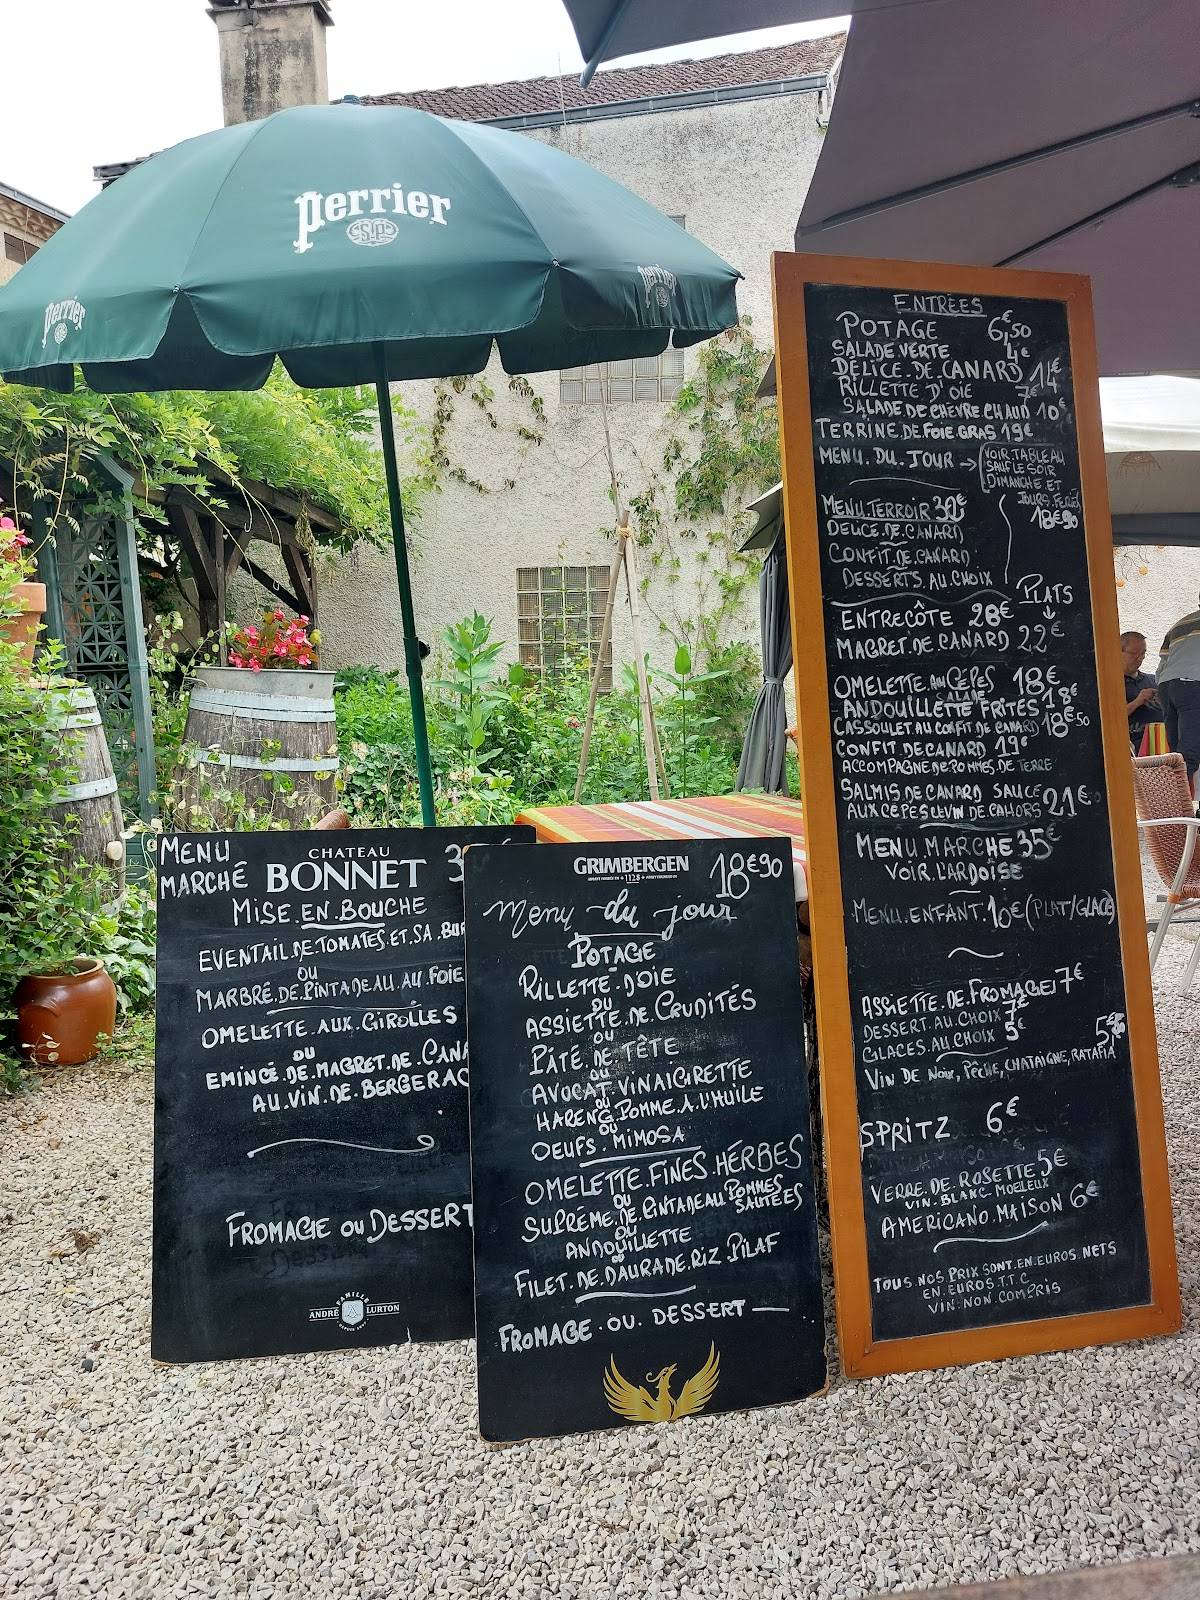 Perrier
Perrier
Perrier
MENU
MARCHÉ
CHATEAU
BONNET
MISE.EN.BOUCHE
EVENTAIL.DE.TOMATES.ET.SA.
OU
MARBRÉ.DE.PINTADEAU.AU.FOIE
OMELETTE.AUX.GIROLLES
OU
EMINCÉ.DE.MAGRET.DE.
AU.VIN.DE.BERGERAC
FROMAGE OU DESSERT
FAMILLE
ANDRÉ LURTON
GRIMBERGEN
1128
18€90
Menu du jour
POTAGE
RILLETTE.D'OIE
OU
ASSIETTE.DE.CRUDITÉS
OU
PÂTÉ.DE.TÊTE
OU
AVOCAT.VINAIGRETTE
OU
HARENG.POMME.A.L'HUILE
OU
OEUFS.MIMOSA
OMELETTE.FINES.HERBES
OU
SUPRÉME.DE.PINTADEAU.POMMES
SAUTÉES
OU
ANDOUILLETTE
OU
FILET.DE.DAURADE.RIZ.PILAF
FROMAGE.OU.DESSERT
ENTRÉES
POTAGE 6€,50
SALADE VERTE 4€
DELICE.DE.CANARD 14€
RILLETTE D'OIE 7€
SALADE DE CHEVRE CHAUD 10€
TERRINE.DE.FOIE GRAS 19€
MENU.DU.JOUR → VOIR.TABLEAU
SAUF LE SOIR
DIMANCHE ET
JOURS.FERIÉS
18€90
MENU.TERROIR 30€
DELICE.DE.CANARD
CONFIT.DE.CANARD
DESSERTS.AU.CHOIX
PLATS
ENTRECÔTE 28€
MAGRET DE CANARD 22€
OMELETTE AUX CÈPES 18€
SALADE
ANDOUILLETTE FRITES 18€
CASSOULET AU CONFIT DE CANARD 18€50
CONFIT DE CANARD 19€
ACCOMPAGNE DE POMMES DE TERRE
SALMIS DE CANARD SAUCE
AUX CÈPES & VIN DE CAHORS 21€
MENU MARCHÉ 35€
VOIR L'ARDOISE
MENU.ENFANT 10€ (PLAT/GLACE)
ASSIETTE.DE.FROMAGE 7€
DESSERT.AU.CHOIX 7€
GLACES.AU.CHOIX 5€
VIN DE NOIX, PÊCHE, CHATAIGNE, RATAFIA
SPRITZ 6€
VERRE.DE.ROSETTE 5€
VIN.BLANC.MOELLEUX
AMERICANO.MAISON 6€
TOUS.NOS.PRIX.SONT.EN.EUROS.NETS
EN.EUROS.T.T.C
VIN.NON.COMPRIS